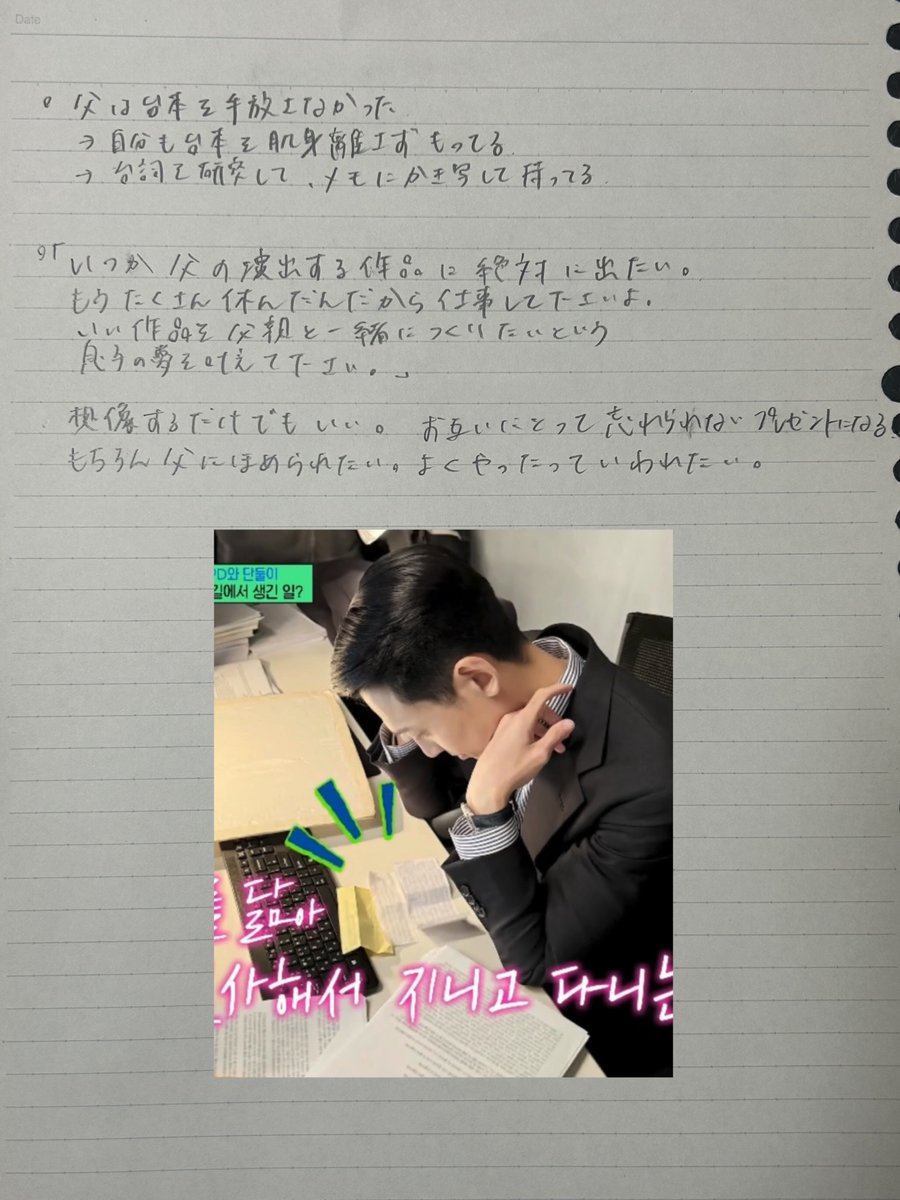 Date
○ 父は台本を手放さなかった
→ 自分も台本を肌身離さずもってる
→ 台詞を研究して、メモにかき写して持ってる
「いつか父の演出する作品に絶対に出たい。
もうたくさん休んだんだから仕事して下さいよ。
いい作品を父親と一緒につくりたいという
息子の夢を叶えて下さい。」
想像するだけでもいい。お互いにとって忘れられないプレゼントになる
もちろん父にほめられたい。よくやったっていわれたい。
PD와 단둘이
길에서 생긴 일?
를 닮아
사해서 지니고 다니는